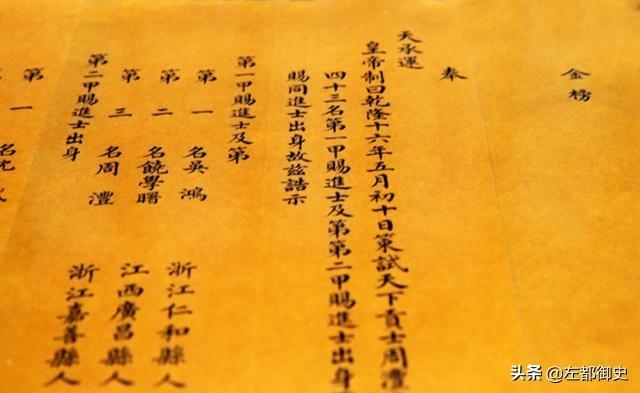 金榜
奉
天承運
皇帝制曰乾隆十六年五月初十日策試天下貢士周澧
四十三名第一甲賜進士及第第二甲賜進士出身
賜同進士出身故茲誥示
第一甲賜進士及第
第一名吳鴻 浙江仁和縣人
第二名饒學曙 江西廣昌縣人
第三名周澧 浙江嘉善縣人
第二甲賜進士出身
第一名
头条 @左都御史